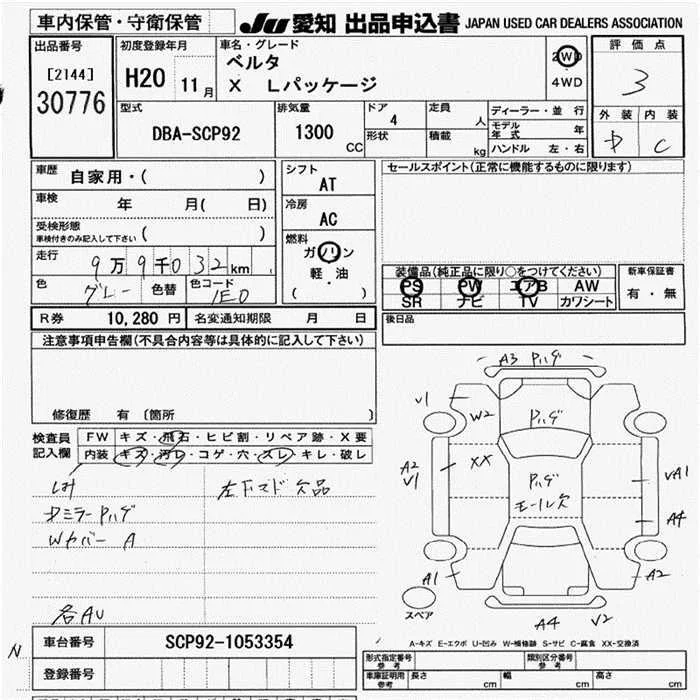 車内保管・守衛保管
JU 愛知 出品申込書 JAPAN USED CAR DEALERS ASSOCIATION
出品番号
[2144]
30776
初度登録年月
H20 11月
車名・グレード
ベルタ
X Lパッケージ
2WD
4WD
評価点
3
外装 内装
C
型式
DBA-SCP92
排気量
1300 CC
ドア
4
形状
定員 人
積載 kg
ディーラー・並行
モデル年式 年
ハンドル 左・右
車歴 自家用・( )
車検 年 月( 日)
受検形態
車検付きのみ記入して下さい ( )
走行 9万9千032km
色 グレー 色替 色コード 1E0
シフト
AT
冷房
AC
燃料
ガソリン
軽・油
( )
セールスポイント(正常に機能するものに限ります)
装備品(純正品に限り○をつけてください)
PS PW エアB AW
SR ナビ TV カワシート
新車保証書
有・無
R券 10,280円 名変通知期限 月 日
後日品
注意事項申告欄(不具合内容等は具体的に記入して下さい)
修復歴 有〔箇所 〕
検査員記入欄
FW キズ・飛石・ヒビ割・リペア跡・X要
内装 キズ・汚レ・コゲ・穴・スレ・キレ・破レ
左ドミラーPハゲ
Wカバー A
各AU
A3 Pハゲ
V1
W2
Pハゲ
A2
V1
XX
Pハゲ
モール欠
VA1
A4
A1
A2
スペア
A4 V2
A-キズ E-エクボ U-凹み W-補修跡 S-サビ C-腐食 XX-交換済
N
車台番号 SCP92-1053354
登録番号
形式指定番号 参考
類別区分番号 参考
車庫証明用 参考 長さ cm 幅 cm 高さ cm